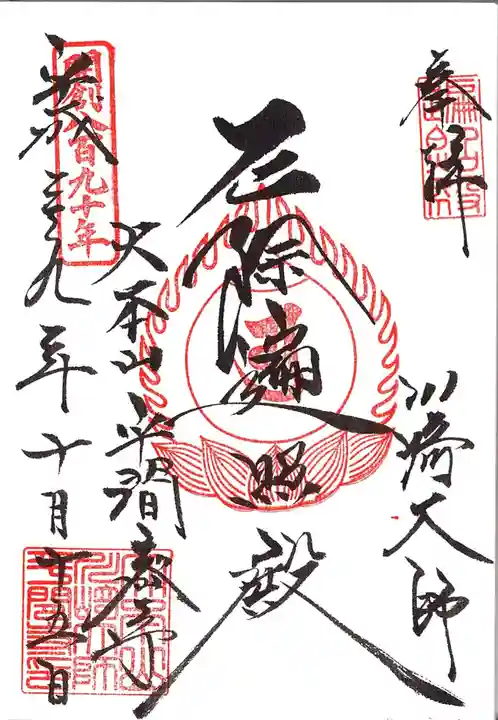 奉拝
川崎大師
厄除遍照殿
大本山平間寺
開創八百九十年
平成二十九年十月十五日